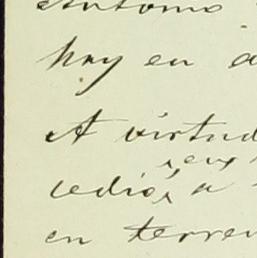 Antonio
hay en
A virtud
cedió, a
en terren